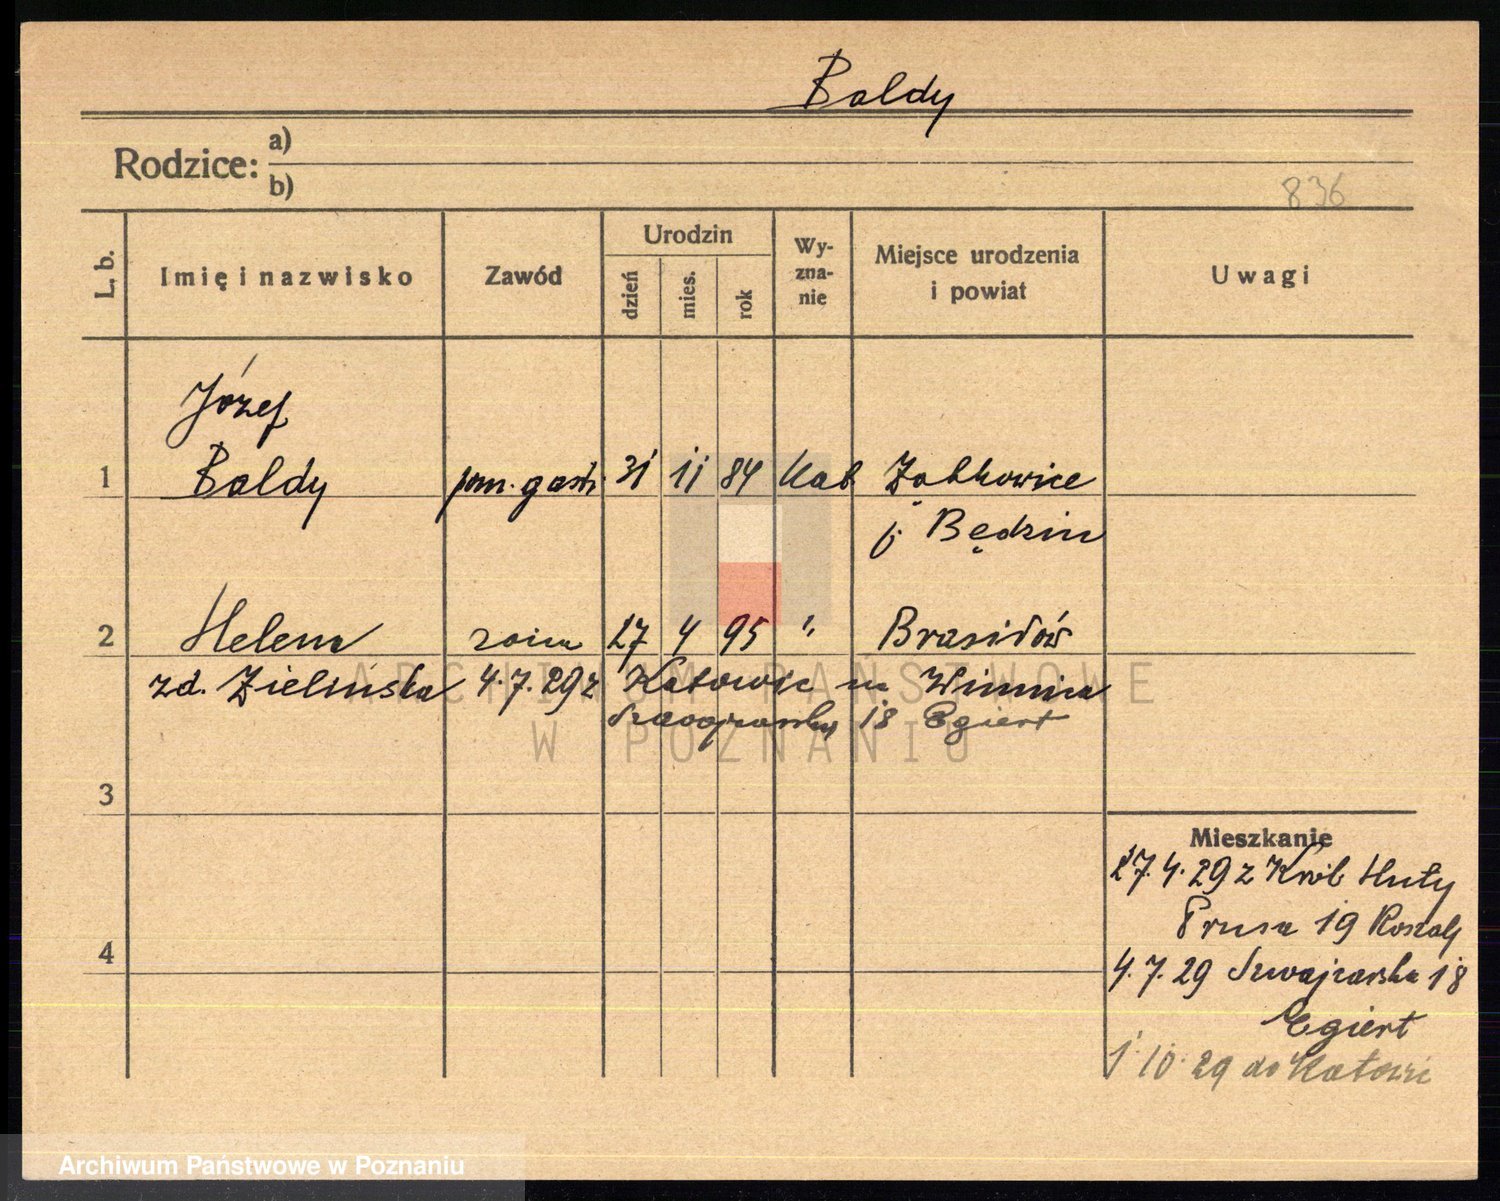 Baldy
Rodzice: a)
b)
836
L. b.
Imię i nazwisko
Zawód
Urodzin
dzień
mies.
rok
Wy-
zna-
nie
Miejsce urodzenia
i powiat
Uwagi
Józef
1 Baldy pom. gastr. 31 11 84 kat Ząbkowice
p. Będzin
2 Helena żona 27 4 95 "
zd. Zielińska 4.7.29 z Katowic Winnica
18 Egiert
3
4
Mieszkanie
27.4.29 z Król Huty
Prusa 19
4.7.29 Szwajcarska 18
Egiert
1.10.29 do Katowic
ARCHIWUM PAŃSTWOWE
W POZNANIU
Archiwum Państwowe w Poznaniu